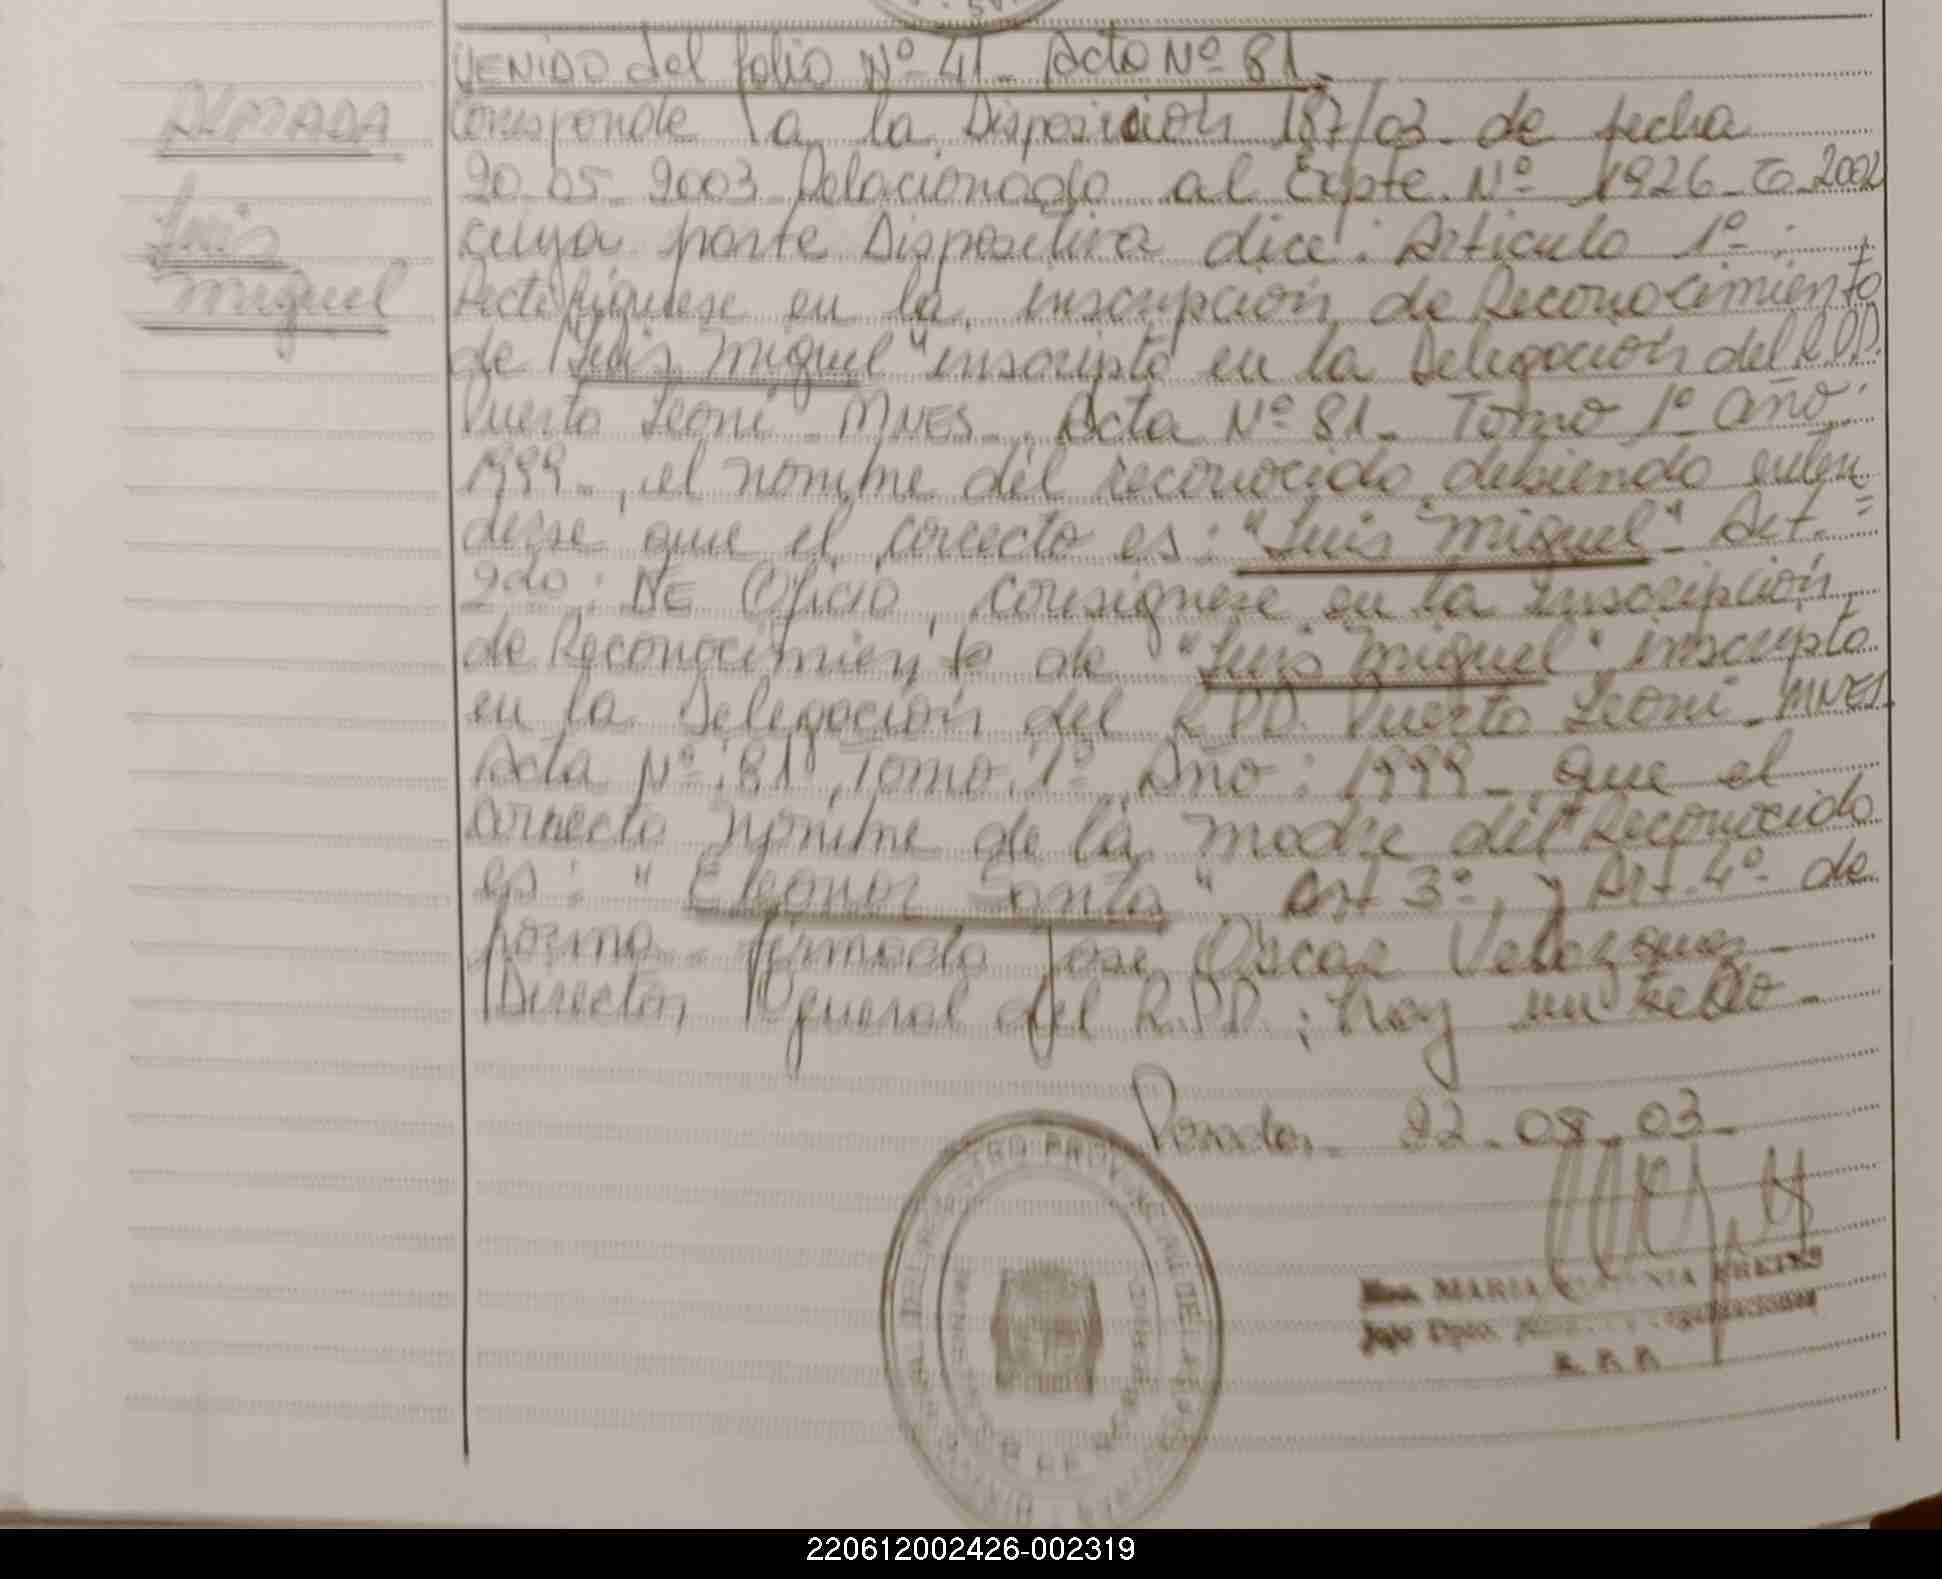 VENIDO del folio Nº 41_ Acta Nº 81_
ALMADA
Corresponde a la Disposición 187/03_ de fecha
Luis
20_05_2003_Relacionado al Expte. Nº 1926_ _2002
cuya parte Dispositiva dice: Articulo 1º:
Miguel
Rectifiquese en la inscripción de Reconocimiento
de "Luis Miguel" inscripto en la Delegación del R.P.P.
Puerto Leoni_MNES_. Acta Nº 81_ Tomo 1º año:
1999_, el nombre del reconocido debiendo enten
derse que el correcto es: "Luis Miguel"_ Art. =
2do: DE Oficio, consignese en la inscripción
de Reconocimiento de "Luis Miguel" inscripto
en la Delegación del R.P.P. Puerto Leoni_MNES.
Acta Nº: 81, Tomo 1º Año: 1999_ que el
correcto nombre de la madre del Reconocido
es: "Eleonor Santa" Art 3º, y Art. 4º de
forma_ firmado Jose Oscar Velozquez_
Director General del R.P.P.; hay un sello_
Posadas_ 22_08_03_
MARIA
Jefe Dpto.
220612002426-002319